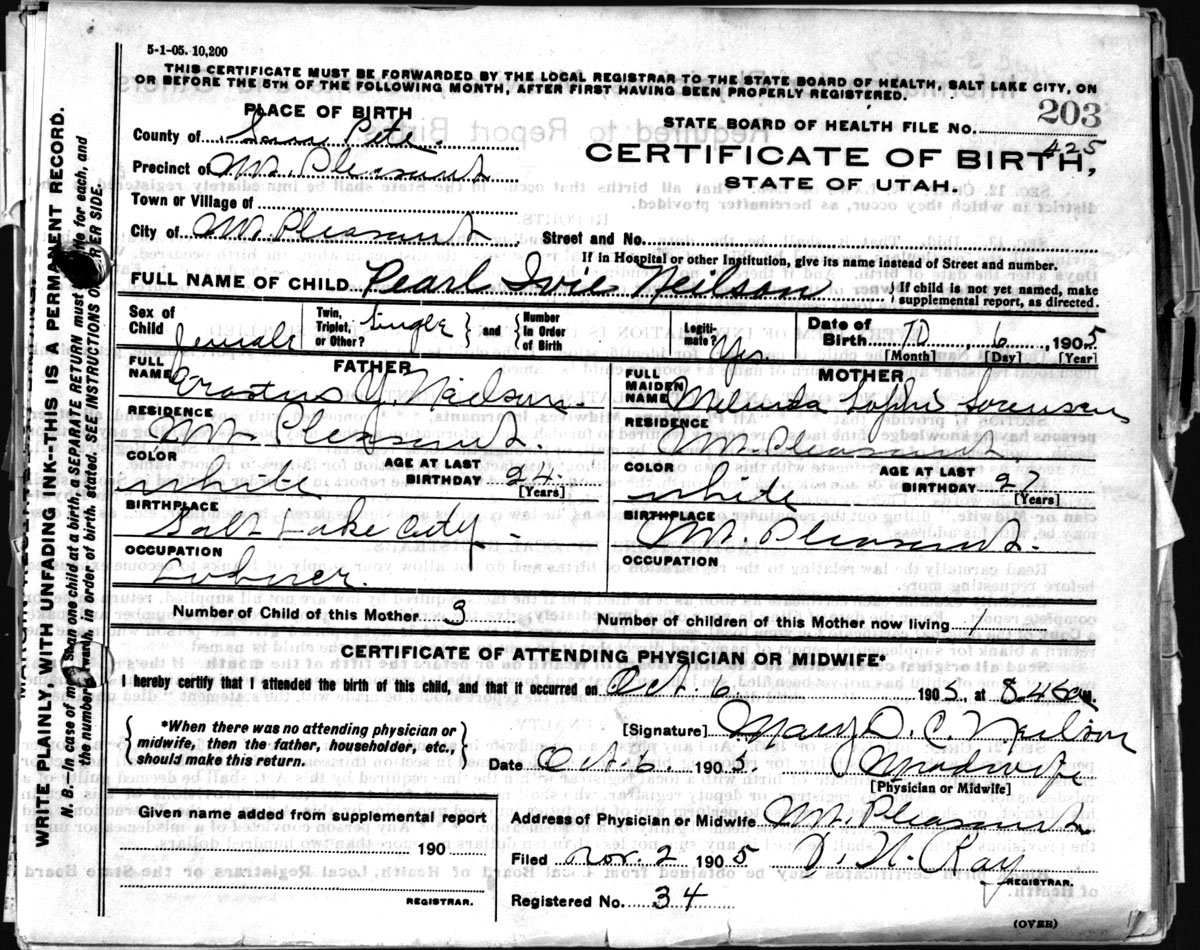 5-1-05. 10,200
THIS CERTIFICATE MUST BE FORWARDED BY THE LOCAL REGISTRAR TO THE STATE BOARD OF HEALTH, SALT LAKE CITY, ON
OR BEFORE THE 5TH OF THE FOLLOWING MONTH, AFTER FIRST HAVING BEEN PROPERLY REGISTERED.
PLACE OF BIRTH
STATE BOARD OF HEALTH FILE NO. 203
425
County of San Pete.
CERTIFICATE OF BIRTH,
Precinct of Mt. Pleasant
STATE OF UTAH.
Town or Village of
City of Mt. Pleasant Street and No.
If in Hospital or other Institution, give its name instead of Street and number.
FULL NAME OF CHILD Pearl Ivie Neilson { If child is not yet named, make
supplemental report, as directed.
Sex of Child Female
Twin, Triplet, or Other? Single } and { Number in Order of Birth
Legitimate? Yes.
Date of Birth 10 6, 1905
[Month] [Day] [Year]
FATHER
FULL NAME Erastus Y. Neilson
RESIDENCE
Mt. Pleasant.
COLOR white AGE AT LAST BIRTHDAY 24
[Years]
BIRTHPLACE
Salt Lake City -
OCCUPATION
MOTHER
FULL MAIDEN NAME Sophi Sorensen
RESIDENCE
Mt. Pleasant
COLOR white AGE AT LAST BIRTHDAY 27
[Years]
BIRTHPLACE
Mt. Pleasant.
OCCUPATION
Number of Child of this Mother 3 Number of children of this Mother now living 1
CERTIFICATE OF ATTENDING PHYSICIAN OR MIDWIFE*
I hereby certify that I attended the birth of this child, and that it occurred on Oct. 6 1905, at 8 45 a M.
{ *When there was no attending physician or
midwife, then the father, householder, etc.,
should make this return. }
[Signature] Mary D. C. Neilson
Date Oct. 6 1905. (Midwife
[Physician or Midwife]
Given name added from supplemental report
190
REGISTRAR.
Address of Physician or Midwife Mt. Pleasant
Filed Nov. 2 1905 Ray
REGISTRAR.
Registered No. 34
(OVER)
WRITE PLAINLY, WITH UNFADING INK--THIS IS A PERMANENT RECORD.
N. B.--In case of more than one child at a birth, a SEPARATE RETURN must be made for each, and
the number of each, in order of birth, stated. SEE INSTRUCTIONS ON OTHER SIDE.